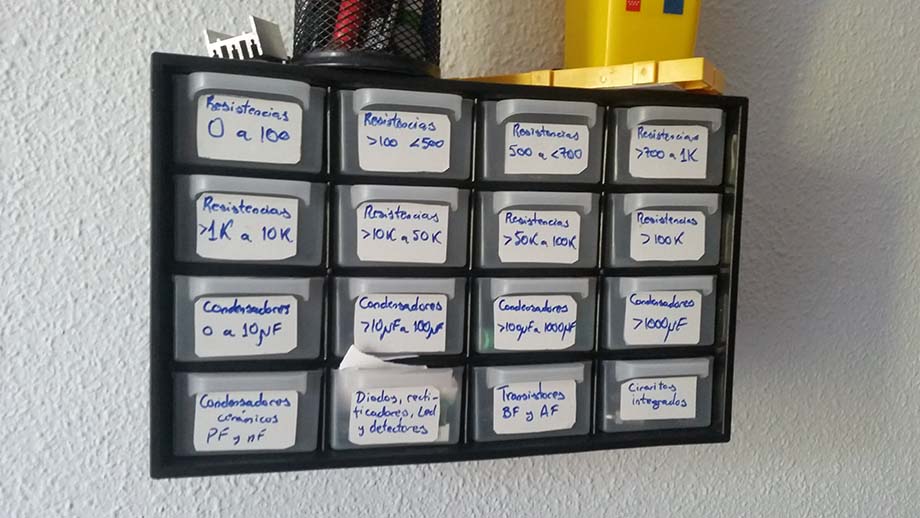 Resistencias
0 a 100
Resistencias
>100 <500
Resistencias
500 a <700
Resistencias
>700 a 1K
Resistencias
>1K a 10K
Resistencias
>10K a 50K
Resistencias
>50K a 100K
Resistencias
>100K
Condensadores
0 a 10µF
Condensadores
>10µF a 100µF
Condensadores
>100µF a 1000µF
Condensadores
>1000µF
Condensadores
cerámicos
PF y nF
Diodos, recti-
ficadores, Led
y detectores
Transistores
BF y AF
Circuitos
integrados